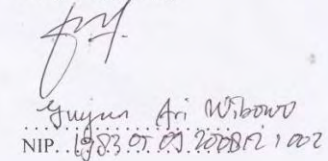 Ari Wibowo
NIP. 19830509 200812 1 002